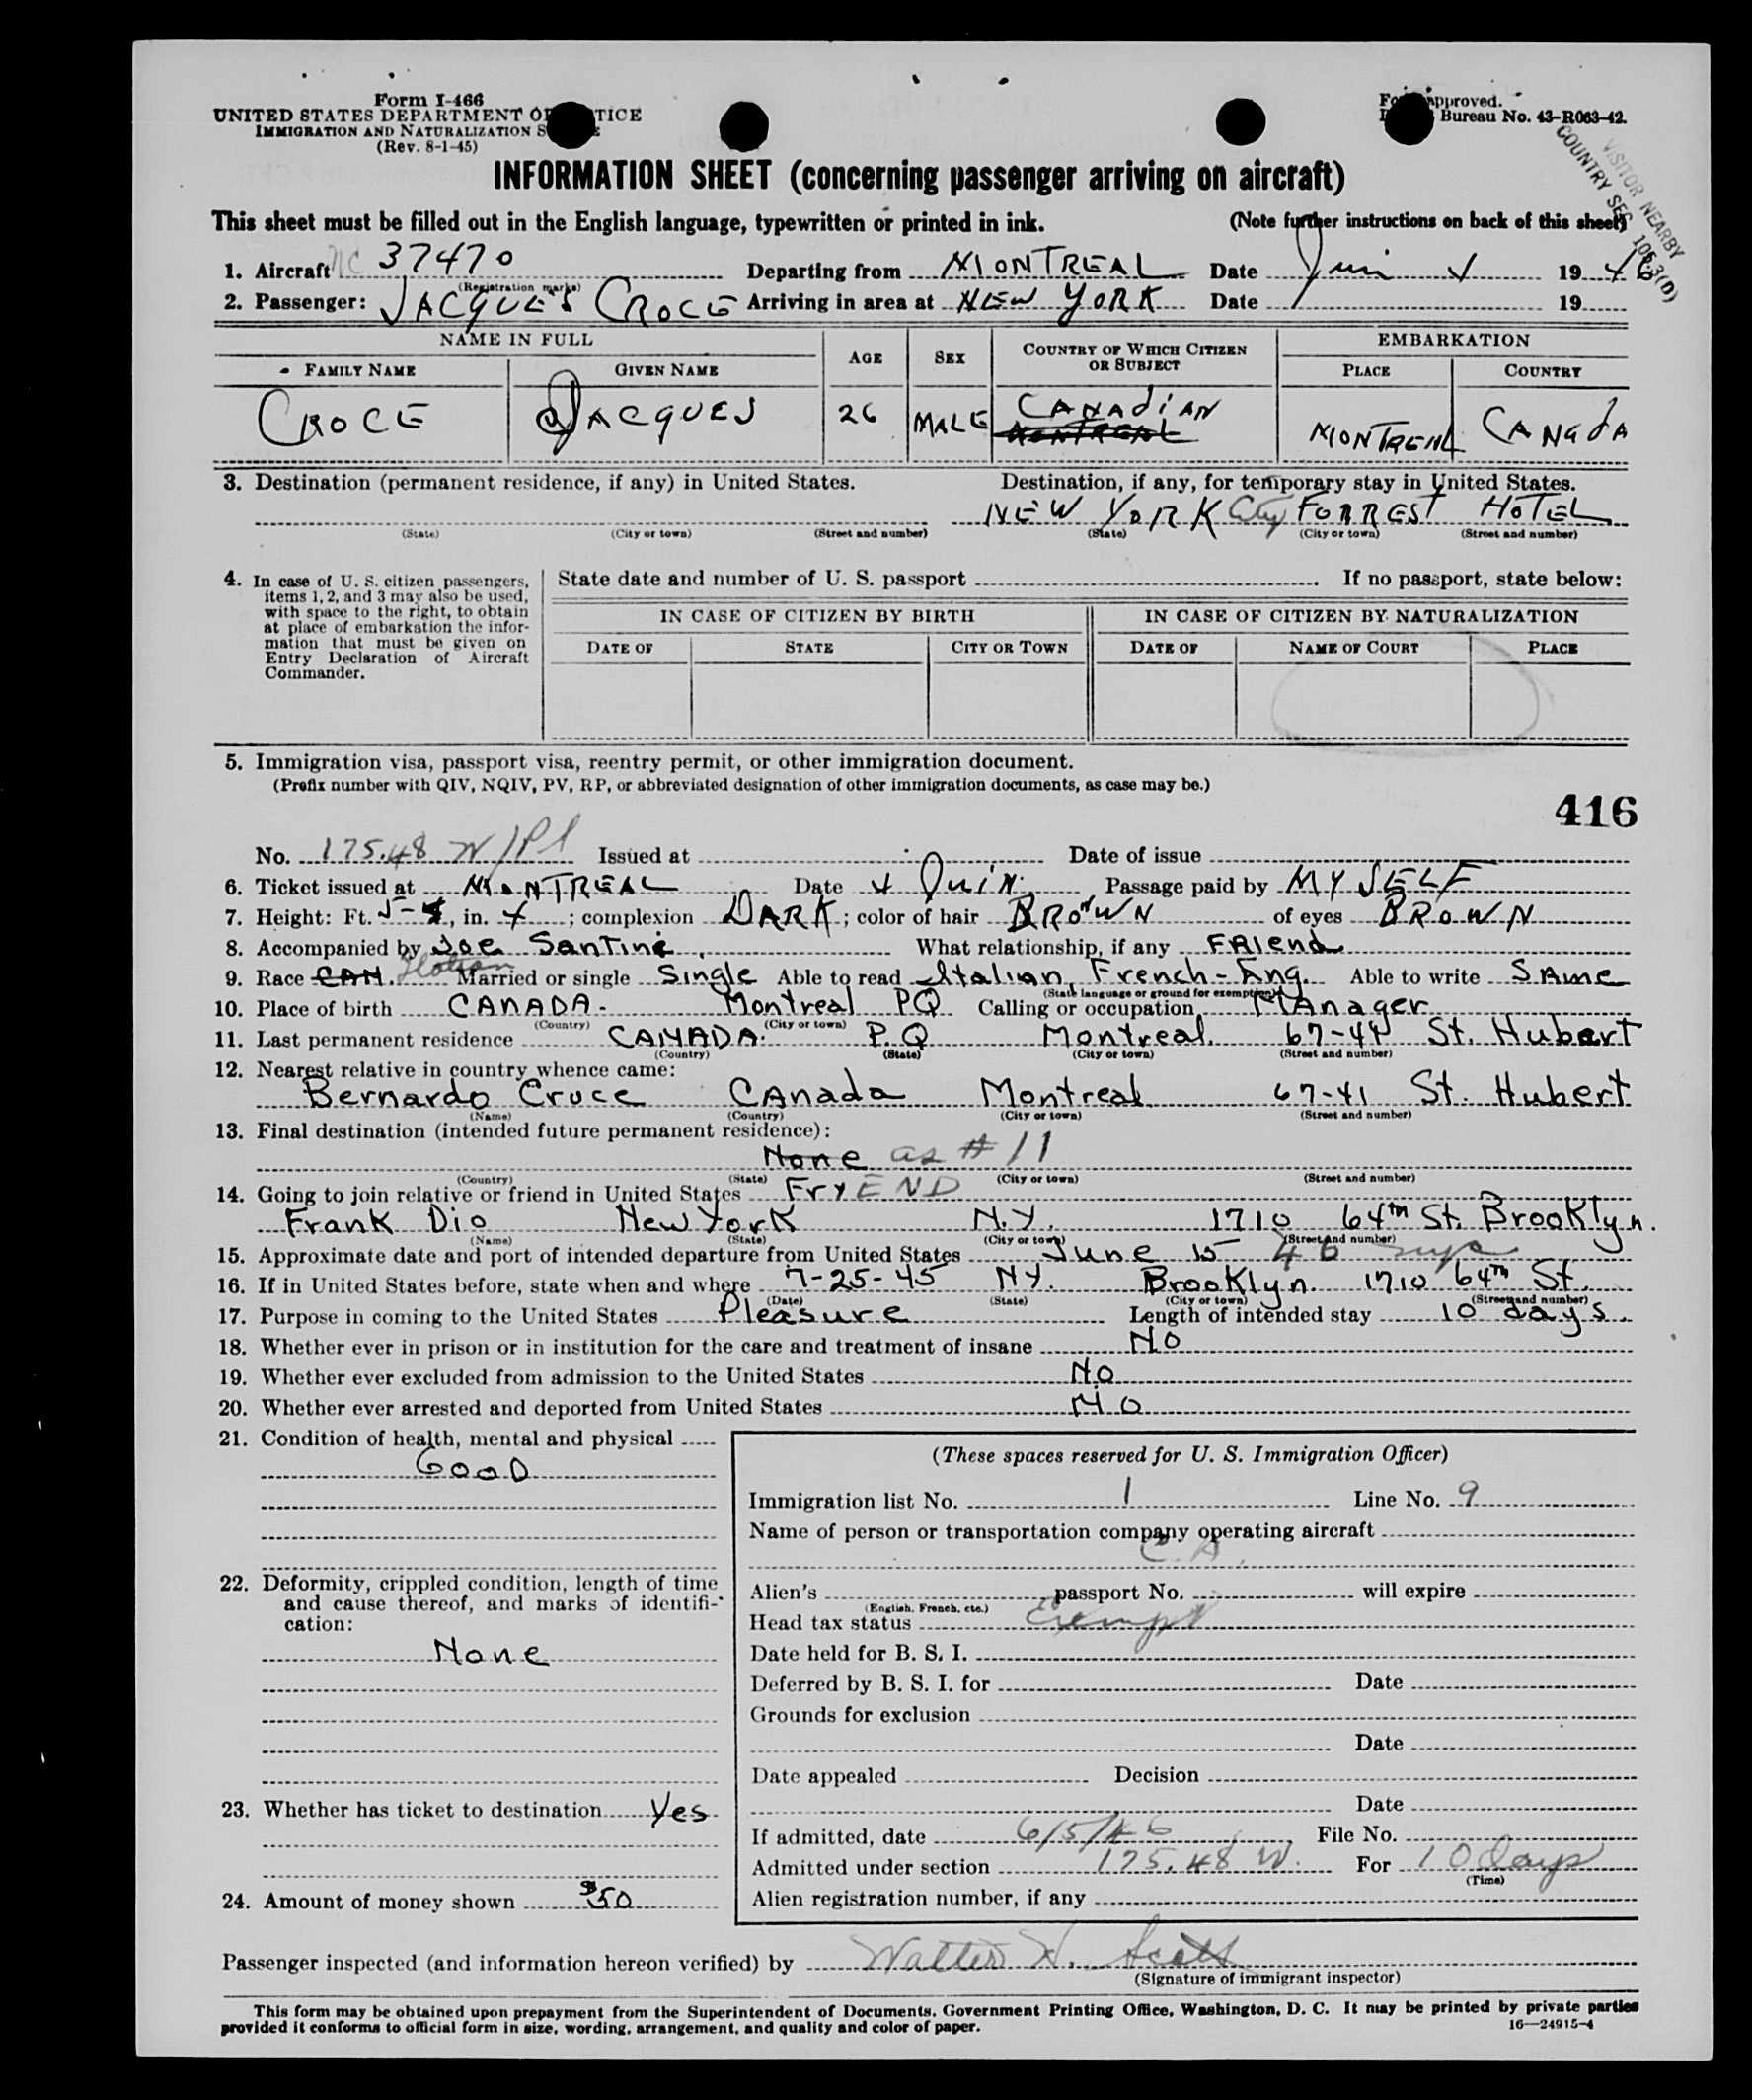 Form I-466
UNITED STATES DEPARTMENT OF JUSTICE
IMMIGRATION AND NATURALIZATION
(Rev. 8-1-45)
Form approved.
Bureau No. 43-R063-42.
VISITOR NEARBY
COUNTRY SEC 10 3(D)
INFORMATION SHEET (concerning passenger arriving on aircraft)
This sheet must be filled out in the English language, typewritten or printed in ink. (Note further instructions on back of this sheet)
1. Aircraft NC 37470 Departing from MONTREAL Date Juin 4 1946
(Registration marks)
2. Passenger: JACQUES CROCE Arriving in area at NEW YORK Date 19
NAME IN FULL AGE SEX COUNTRY OF WHICH CITIZEN OR SUBJECT EMBARKATION
FAMILY NAME GIVEN NAME PLACE COUNTRY
CROCE JACQUES 26 MALE CANADIAN MONTREAL MONTREAL CANADA
3. Destination (permanent residence, if any) in United States. Destination, if any, for temporary stay in United States.
NEW YORK City FORREST HOTEL
(State) (City or town) (Street and number) (State) (City or town) (Street and number)
4. In case of U. S. citizen passengers, items 1, 2, and 3 may also be used, with space to the right, to obtain at place of embarkation the information that must be given on Entry Declaration of Aircraft Commander.
State date and number of U. S. passport If no passport, state below:
IN CASE OF CITIZEN BY BIRTH IN CASE OF CITIZEN BY NATURALIZATION
DATE OF STATE CITY OR TOWN DATE OF NAME OF COURT PLACE
5. Immigration visa, passport visa, reentry permit, or other immigration document.
(Prefix number with QIV, NQIV, PV, RP, or abbreviated designation of other immigration documents, as case may be.)
416
No. 175.48 W/Pl Issued at Date of issue
6. Ticket issued at MONTREAL Date 4 Juin. Passage paid by MY SELF
7. Height: Ft. 5-, in. 4; complexion DARK; color of hair BROWN of eyes BROWN
8. Accompanied by Joe Santini What relationship, if any FRIend
9. Race CAN. Italian Married or single Single Able to read Italian, French-Eng. Able to write SAme
(State language or ground for exemption)
10. Place of birth CANADA. Montreal PQ Calling or occupation MAnager
(Country) (City or town)
11. Last permanent residence CANADA. P.Q Montreal. 67-41 St. Hubert
(Country) (State) (City or town) (Street and number)
12. Nearest relative in country whence came:
Bernardo Cruce CAnada Montreal 67-41 St. Hubert
(Name) (Country) (City or town) (Street and number)
13. Final destination (intended future permanent residence):
None as # 11
(Country) (State) (City or town) (Street and number)
14. Going to join relative or friend in United States FryEND
Frank Dio New York N.Y. 1710 64th St. Brooklyn.
(Name) (State) (City or town) (Street and number)
15. Approximate date and port of intended departure from United States June 15 46 nyc
16. If in United States before, state when and where 7-25-45 NY. Brooklyn. 1710 64th St.
(Date) (State) (City or town) (Street and number)
17. Purpose in coming to the United States Pleasure Length of intended stay 10 days.
18. Whether ever in prison or in institution for the care and treatment of insane NO
19. Whether ever excluded from admission to the United States No
20. Whether ever arrested and deported from United States NO
21. Condition of health, mental and physical
GooD
22. Deformity, crippled condition, length of time and cause thereof, and marks of identification:
None
23. Whether has ticket to destination Yes
24. Amount of money shown $50
(These spaces reserved for U. S. Immigration Officer)
Immigration list No. 1 Line No. 9
Name of person or transportation company operating aircraft
C. A.
Alien's passport No. will expire
(English, French, etc.)
Head tax status Exempt
Date held for B. S. I.
Deferred by B. S. I. for Date
Grounds for exclusion
Date
Date appealed Decision
Date
If admitted, date 6/5/46 File No.
Admitted under section 175.48 W. For 10 days
(Time)
Alien registration number, if any
Passenger inspected (and information hereon verified) by Walter H. Scott
(Signature of immigrant inspector)
This form may be obtained upon prepayment from the Superintendent of Documents, Government Printing Office, Washington, D. C. It may be printed by private parties
provided it conforms to official form in size, wording, arrangement, and quality and color of paper. 16—24915-4